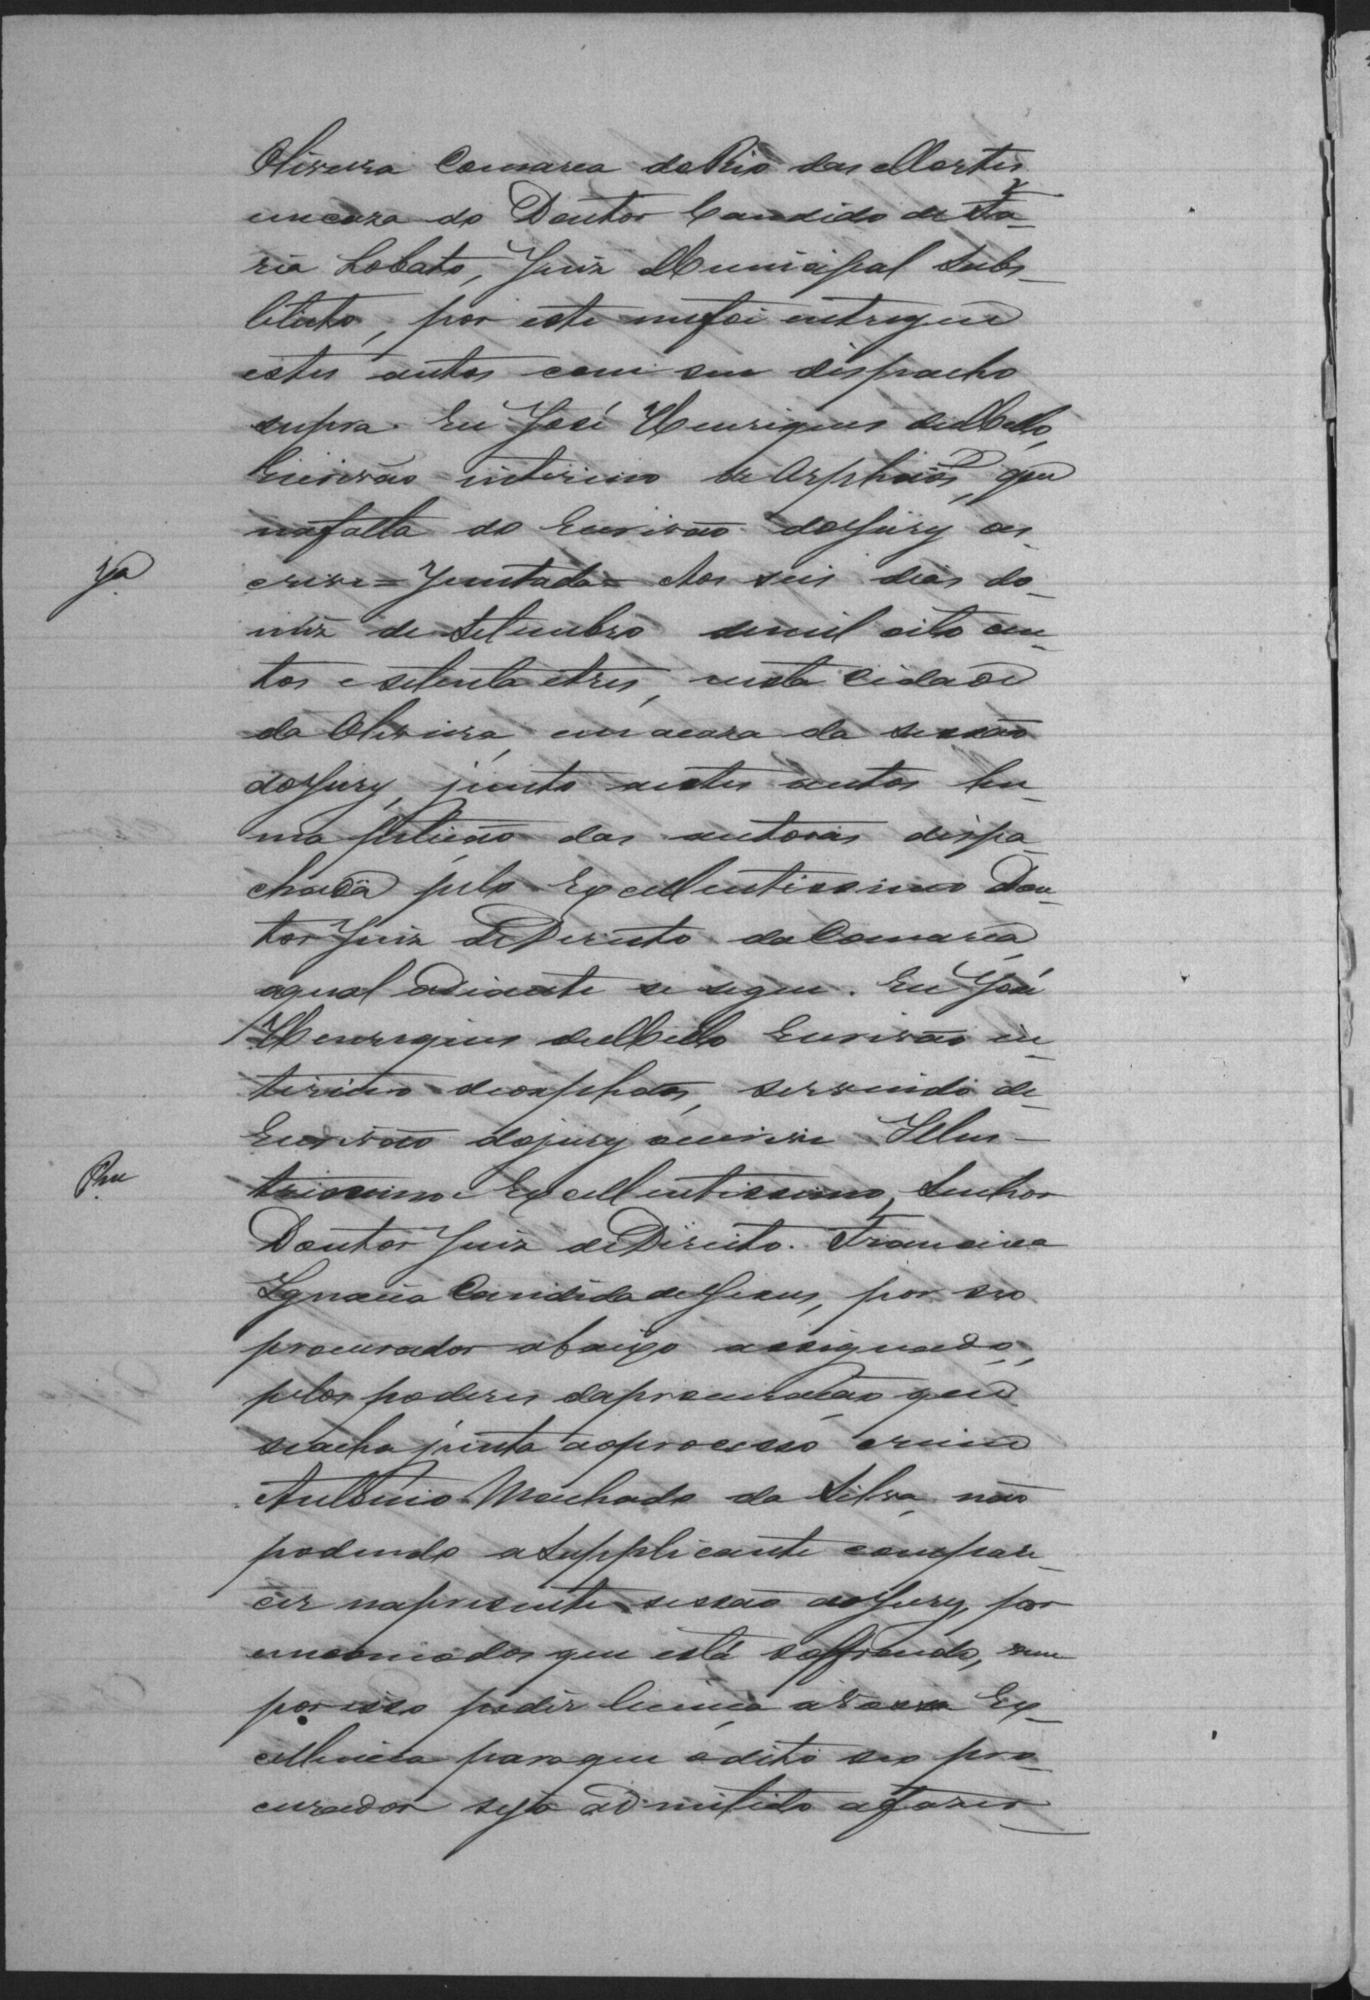 Oliveira Comarca do Rio das Mortes
em caza do Doutor Candido de Fa-
ria Lobato, Juiz Municipal Subs-
tituto, por este me foi entregue
estes autos com seu despacho
supra. Eu José Henriques de Mello,
Escrivão interino de Orphãos, que
na falta do Escrivão do Jury es-
crevi = Juntada = Aos seis dias do
Ja
mez de Setembro de mil oito cen-
tos e setenta e tres, nesta Cidade
da Oliveira, em a caza da sessão
do Jury, junto a estes autos hu-
ma petição das autoras despa-
chada pelo Excellentissimo Dou-
tor Juiz de Direito da Comarca
a qual adiante se segue. Eu José
Henriques de Mello Escrivão in-
terino de orphãos, servindo de
Escrivão do jury escrevi. Illus-
trissimo e Excellentissimo, Senhor
Doutor Juiz de Direito. Francisca
Ignacia Candida de Jesus, por seo
procurador abaixo assignado,
pelos poderes da procuração que
se acha junta ao processo crime
Antonio Machado da Silva não
podendo a Supplicante compare-
cer na presente sessão do Jury, por
encomodos que está soffrendo, vem
por isso pedir licença a Vossa Ex-
cellencia para que o dito seo pro-
curador seja admitido a fazer